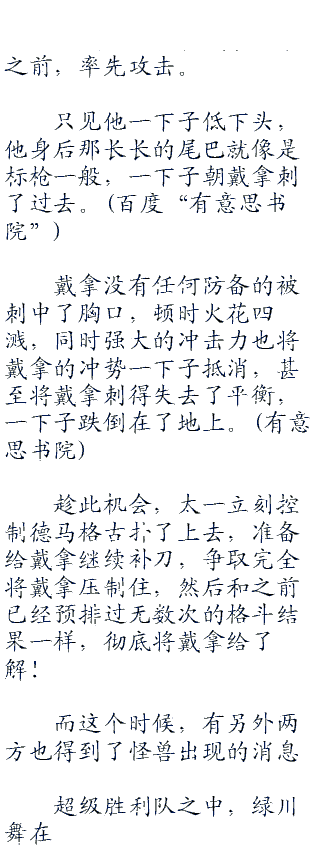 之前，率先攻击。
只见他一下子低下头，
他身后那长长的尾巴就像是
标枪一般，一下子朝戴拿刺
了过去。(百度“有意思书
院”)
戴拿没有任何防备的被
刺中了胸口，顿时火花四
溅，同时强大的冲击力也将
戴拿的冲势一下子抵消，甚
至将戴拿刺得失去了平衡，
一下子跌倒在了地上。(有意
思书院)
趁此机会，太一立刻控
制德马格古扑了上去，准备
给戴拿继续补刀，争取完全
将戴拿压制住，然后和之前
已经预排过无数次的格斗结
果一样，彻底将戴拿给了
解！
而这个时候，有另外两
方也得到了怪兽出现的消息
超级胜利队之中，绿川
舞在